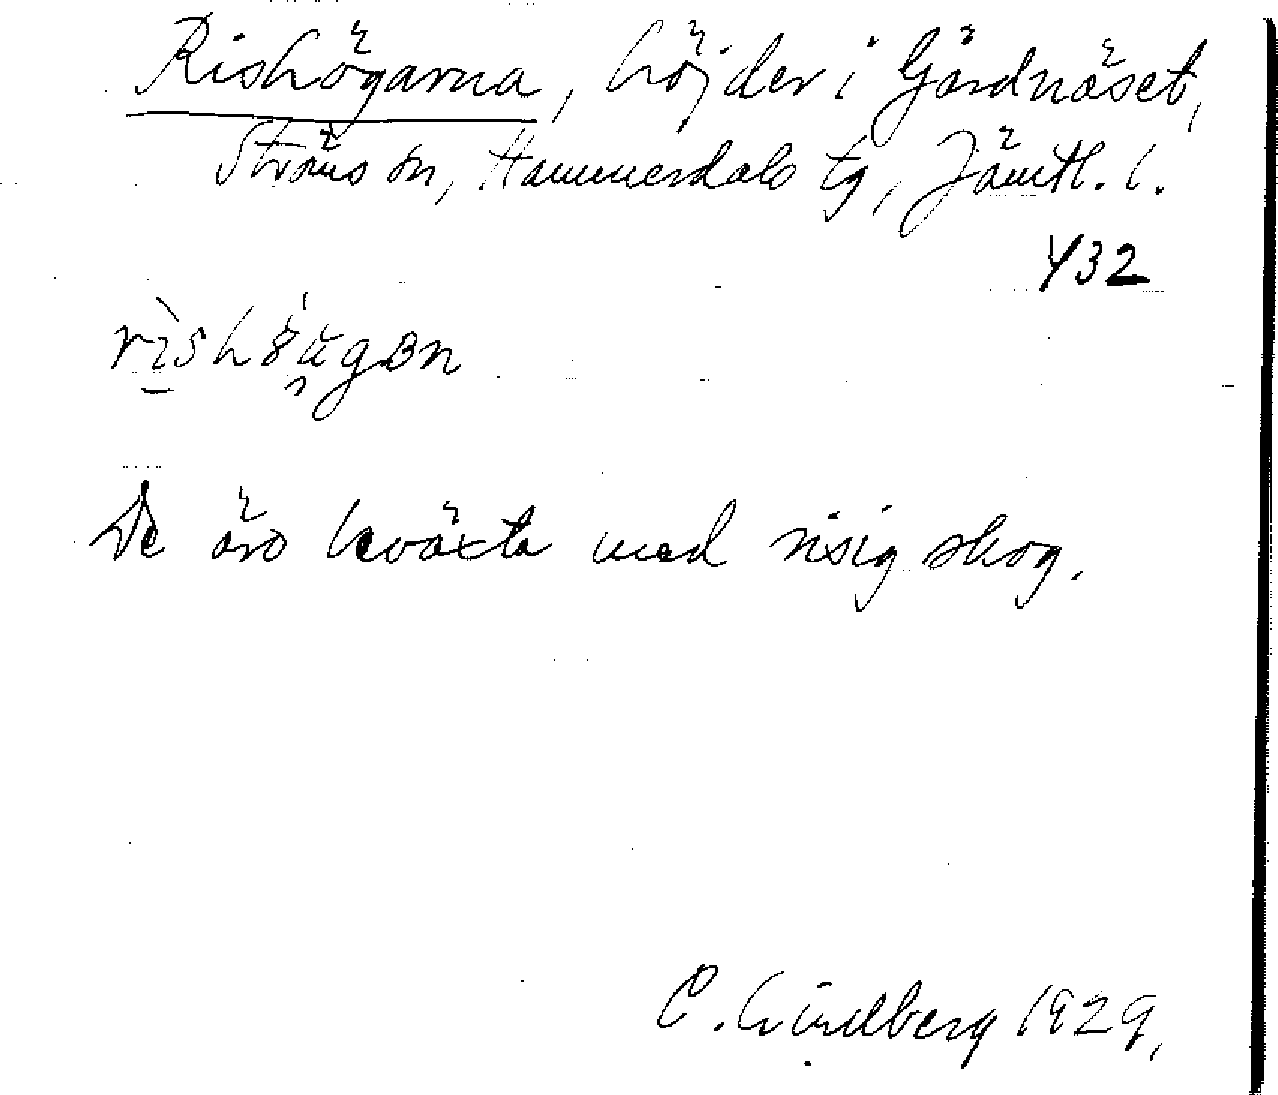 Rishögarna, höjder i Gärdnäset,
Ströms sn, Hammerdals tg, Jämtl. l.
Y32
De äro beväxta med risig skog.
C. Lindberg 1929.